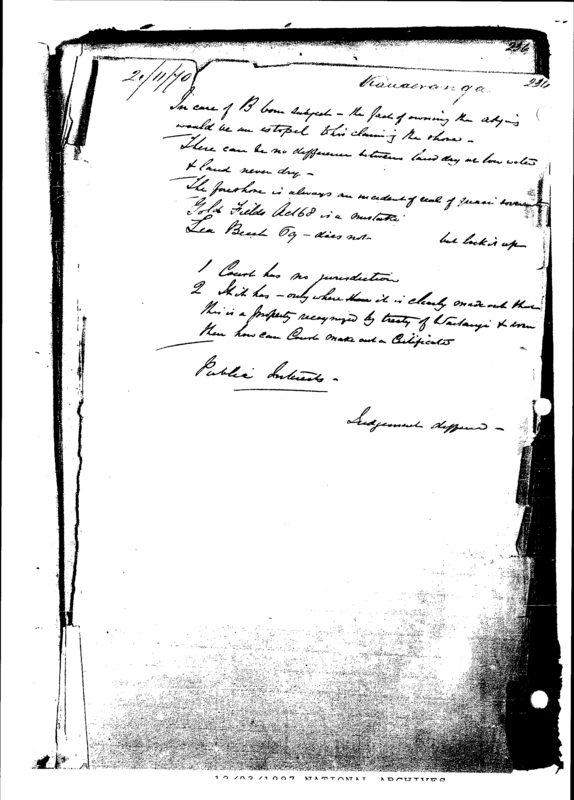 236
20/11/70 Kauaeranga 236
In case of B born subject - the fact of owning the
would be an estopel to his claiming the shore -
There can be no defference between land dry at low water
& land never dry -
The foreshore is always an incident of real of quasi
Gold Fields Act 68 is a mistake
Sea Beach 69 - does not but lock it up
1 Court has no jurisdiction
2 If it has - only where it is clearly made out that
this is a property recognized by treaty of Waitangi & even
then how can Court make out a Certificate
Public Interests -
Judgement -
12/03/1997 NATIONAL ARCHIVES